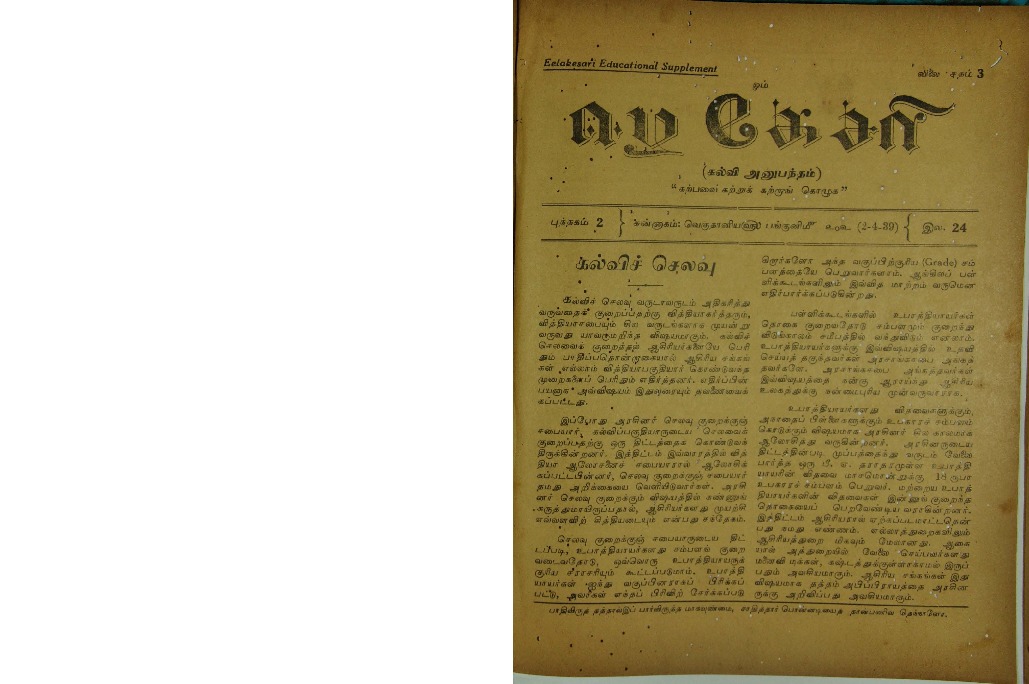 Eelakesari Educational Supplement
விலை சதம் 3
ஓம்
ஈழகேசரி
(கல்வி அனுபந்தம்)
“கற்பவை கற்றுக் கற்றாங் கொழுக”
புத்தகம் 2
சுன்னாகம்: வெகுதானிய பங்குனி (2-4-39)
இல. 24
கல்விச் செலவு
கல்விச் செலவு வருடாவருடம் அதிகரித்து
வருவதைக் குறைப்பதற்கு வித்தியாகர்த்தரும்,
வித்தியாசபையும் சில வருடங்களாக முயன்று
வருவது யாவருமறிந்த விஷயமாகும். கல்விச்
செலவைக் குறைத்தல் ஆசிரியர்களையே பெரி
தும் பாதிப்பதொன்றாகையால் ஆசிரிய சங்கங்
கள் எல்லாம் வித்தியாபகுதியார் கொண்டுவந்த
முறைகளைப் பெரிதும் எதிர்த்தனர். எதிர்ப்பின்
பயனாக அவ்விஷயம் இதுவரையும் தவணைவைக்
கப்பட்டது.
இப்போது அரசினர் செலவு குறைக்குஞ்
சபையார், கல்விப்பகுதியாருடைய செலவைக்
குறைப்பதற்கு ஒரு திட்டத்தைக் கொண்டுவந்
திருக்கின்றனர். இத்திட்டம் இவ்வாரத்தில் வித்
தியா ஆலோசனைச் சபையாரால் ஆலோசிக்
கப்பட்டபின்னர், செலவு குறைக்குஞ் சபையார்
தமது அறிக்கையை வெளியிடுவார்கள். அரசி
னர் செலவு குறைக்கும் விஷயத்தில் கண்ணுங்
கருத்துமாயிருப்பதால், ஆசிரியர்களது முயற்சி
எவ்வளவிற் சித்தியடையும் என்பது சந்தேகம்.
செலவு குறைக்குஞ் சபையாருடைய திட்
டப்படி, உபாத்தியாயர்களது சம்பளம் குறை
வடைவதோடு, ஒவ்வொரு உபாத்தியாயருக்
குரிய சராசரியும் கூட்டப்படுமாம். உபாத்தி
யாயர்கள் ஐந்து வகுப்பினராகப் பிரிக்கப்
பட்டு, அவர்கள் எந்தப் பிரிவிற் சேர்க்கப்படு
கிறார்களோ அந்த வகுப்பிற்குரிய (Grade) சம்
பளத்தையே பெறுவார்களாம். ஆங்கிலப் பள்
ளிக்கூடங்களிலும் இவ்வித மாற்றம் வருமென
எதிர்பார்க்கப்படுகின்றது.
பள்ளிக்கூடங்களில் உபாத்தியாயர்கள்
தொகை குறைவதோடு சம்பளமும் குறைந்து
விடுங்காலம் சமீபத்தில் வந்துவிடும் எனலாம்.
உபாத்தியாயர்களுக்கு இவ்விஷயத்தில் உதவி
செய்யத் தகுந்தவர்கள் அரசாங்கசபை அங்கத்
தவர்களே. அரசாங்கசபை அங்கத்தவர்கள்
இவ்விஷயத்தை நன்கு ஆராய்ந்து ஆசிரிய
உலகத்துக்கு நன்மைபுரிய முன்வருவாராக.
உபாத்தியாயர்களது விதவைகளுக்கும்,
அநாதைப் பிள்ளைகளுக்கும் உபகாரச் சம்பளம்
கொடுக்கும் விஷயமாக அரசினர் சில காலமாக
ஆலோசித்து வருகின்றனர். அரசினருடைய
திட்டத்தின்படி முப்பத்தைந்து வருடம் வேலை
பார்த்த ஒரு பீ. ஏ. தராதரமுள்ள உபாத்தி
யாயரின் விதவை மாசமொன்றுக்கு 18 ரூபா
உபகாரச் சம்பளம் பெறுவர். மற்றைய உபாத்
தியாயர்களின் விதவைகள் இன்னுங் குறைந்த
தொகையைப் பெறவேண்டிய வராகின்றனர்.
இத்திட்டம் ஆசிரியரால் ஏற்கப்படமாட்டாதென்
பது எமது எண்ணம். எல்லாத்துறைகளிலும்
ஆசிரியத்துறை மிகவும் மேலானது. ஆகை
யால் அத்துறையில் வேலை செய்பவர்களது
மனைவி மக்கள், கஷ்டத்துக்குள்ளாகாமல் இருப்
பதும் அவசியமாகும். ஆசிரிய சங்கங்கள் இது
விஷயமாக தத்தம் அபிப்பிராயத்தை அரசின
ருக்கு அறிவிப்பது அவசியமாகும்.